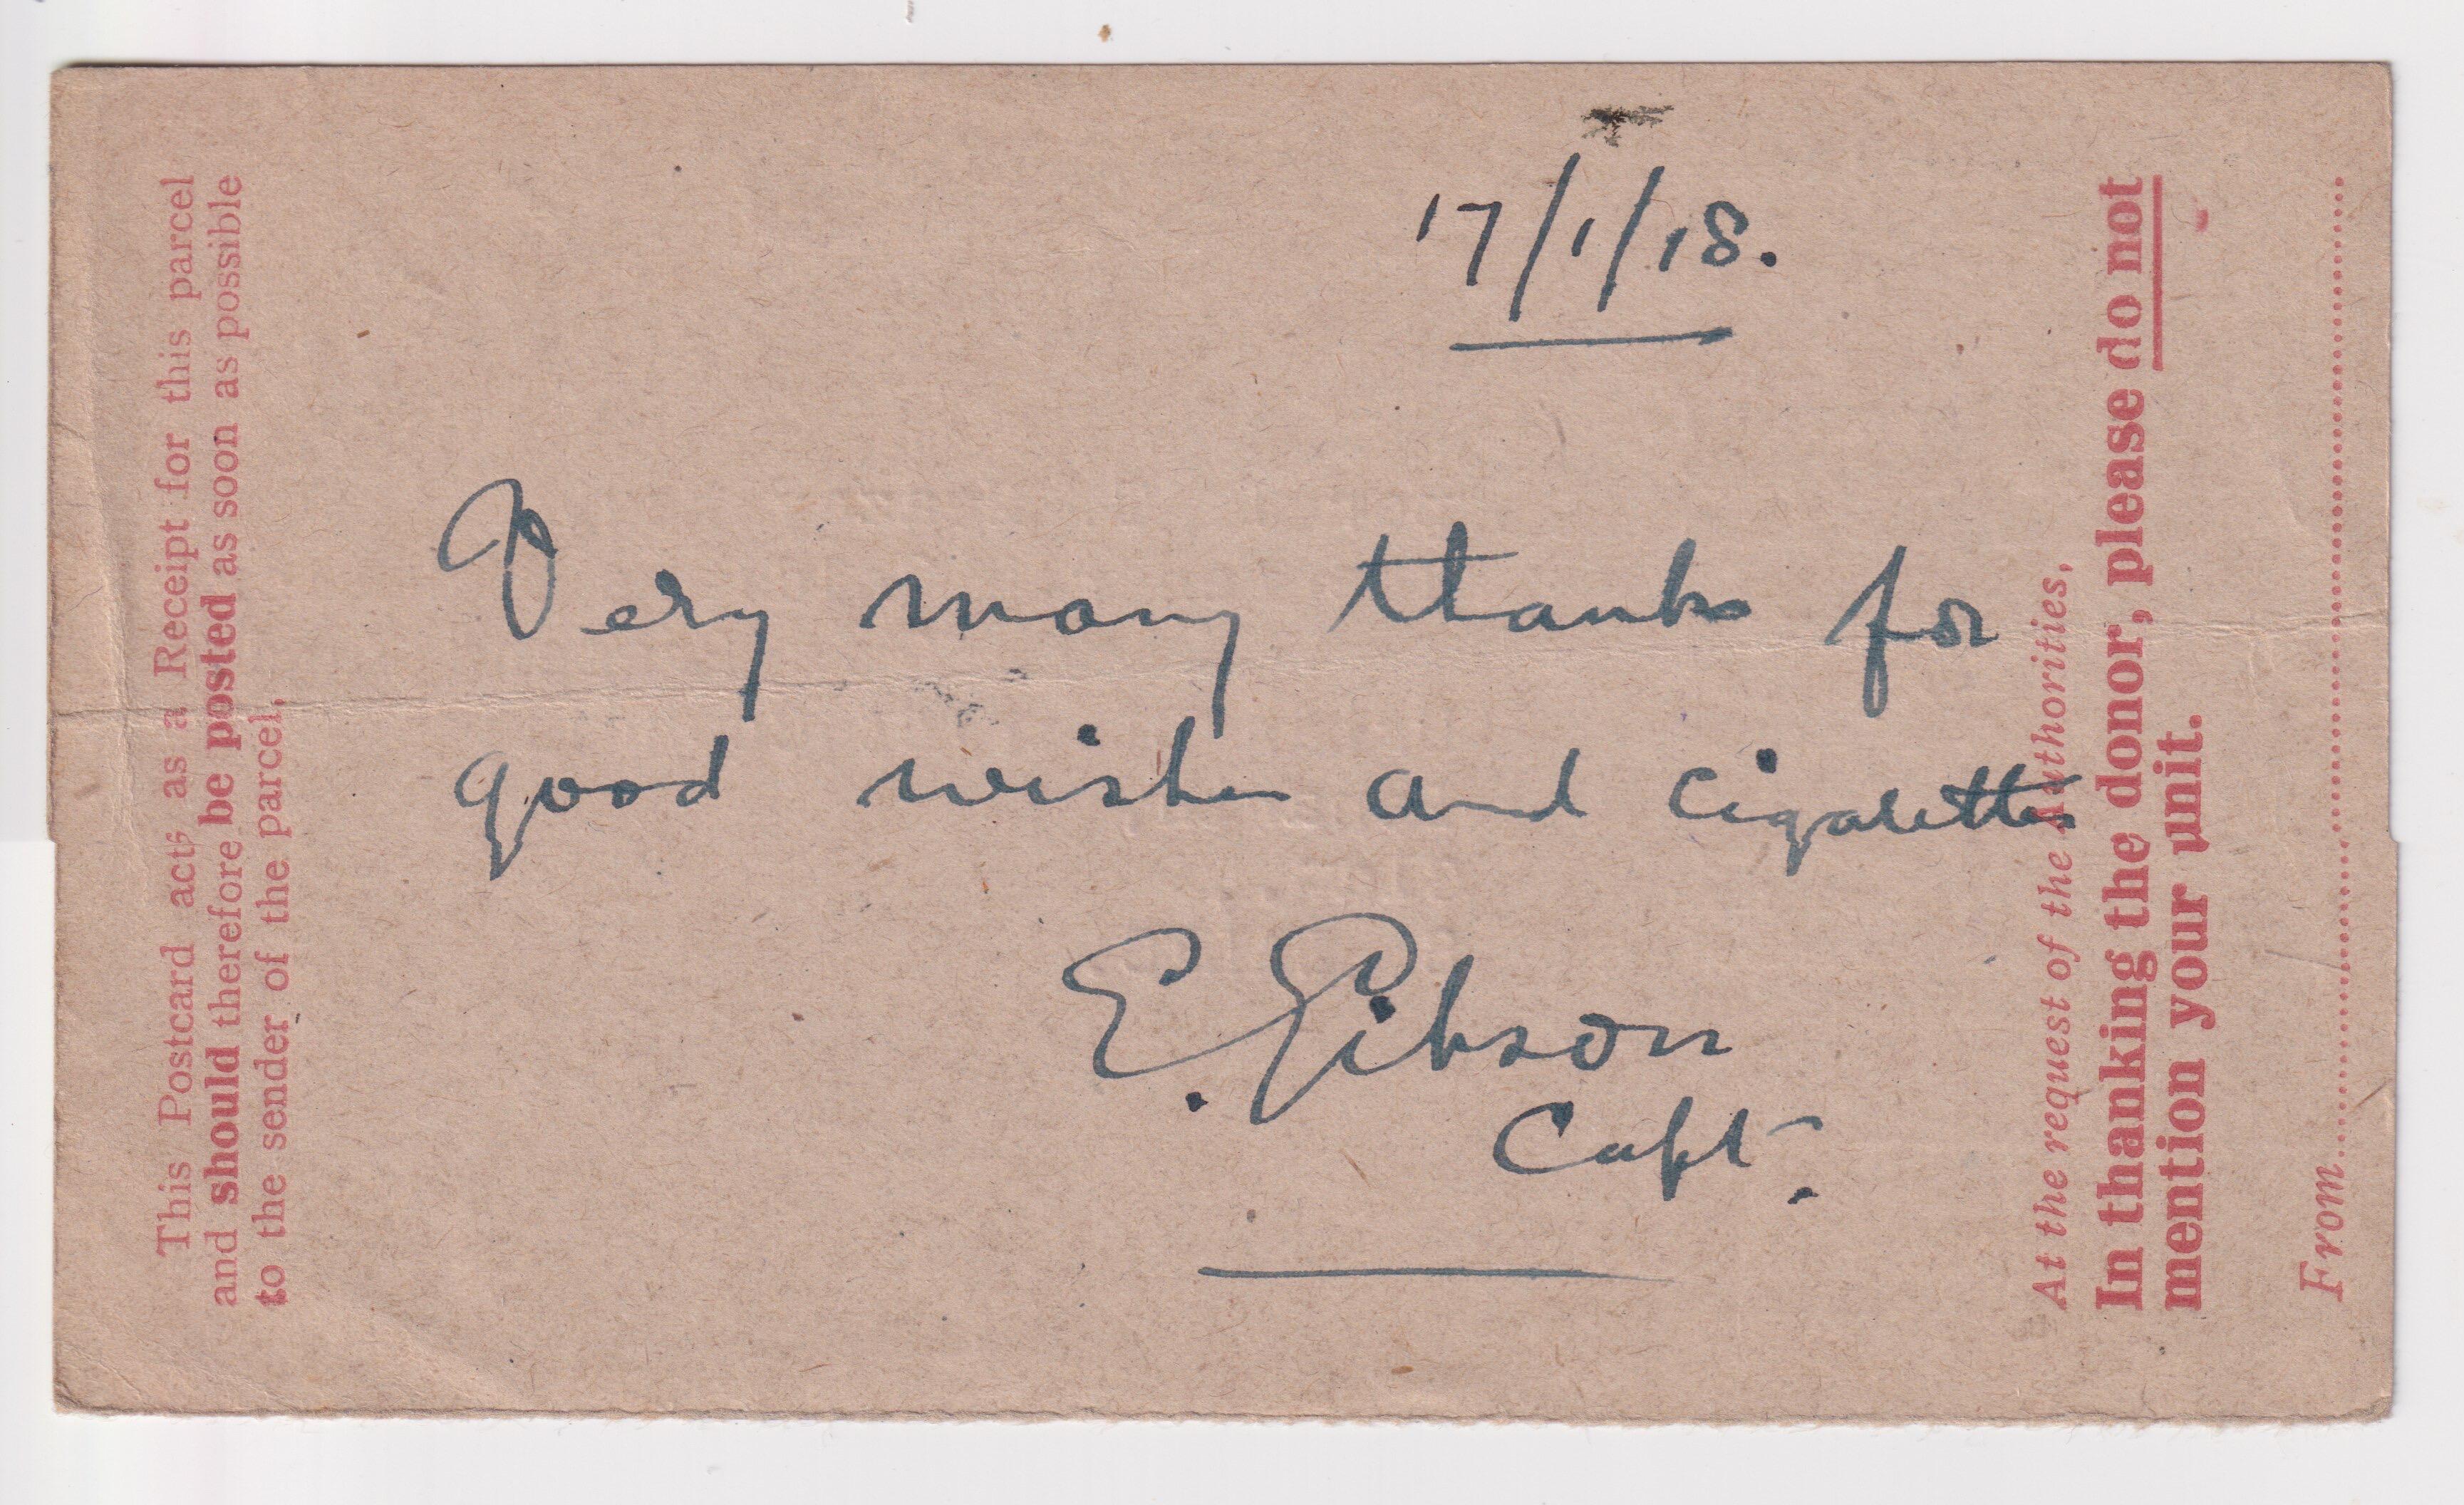 This Postcard acts as a Receipt for this parcel
and should therefore be posted as soon as possible
to the sender of the parcel.
17/1/18.
Very many thanks for
good wishes and cigarettes
E. Gibson
Capt.
At the request of the Authorities,
In thanking the donor, please do not
mention your unit.
From